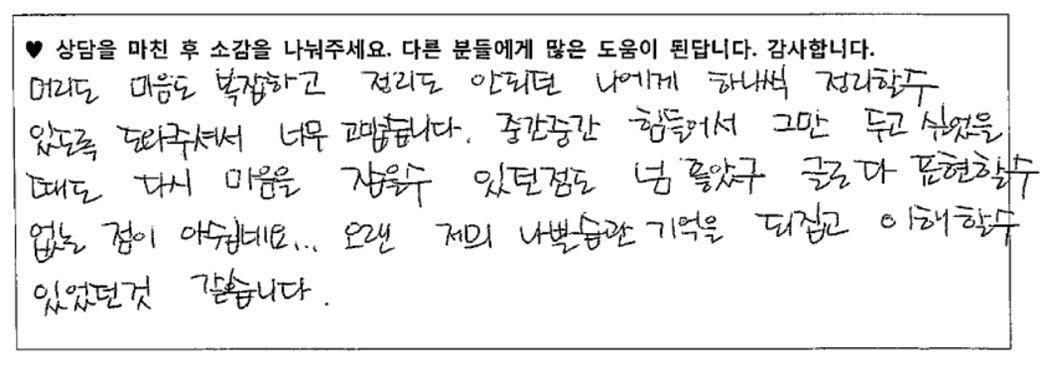 ♥ 상담을 마친 후 소감을 나눠주세요. 다른 분들에게 많은 도움이 된답니다. 감사합니다.
머리도 마음도 복잡하고 정리도 안되던 나에게 하나씩 정리할수
있도록 도와주셔서 너무 고맙습니다. 중간중간 힘들어서 그만 두고 싶었을
때도 다시 마음을 잡을수 있던점도 넘 좋았구 글로 다 표현할수
없는 점이 아쉽네요... 오랜 저의 나쁜습관 기억을 뒤집고 이해할수
있었던것 같습니다.